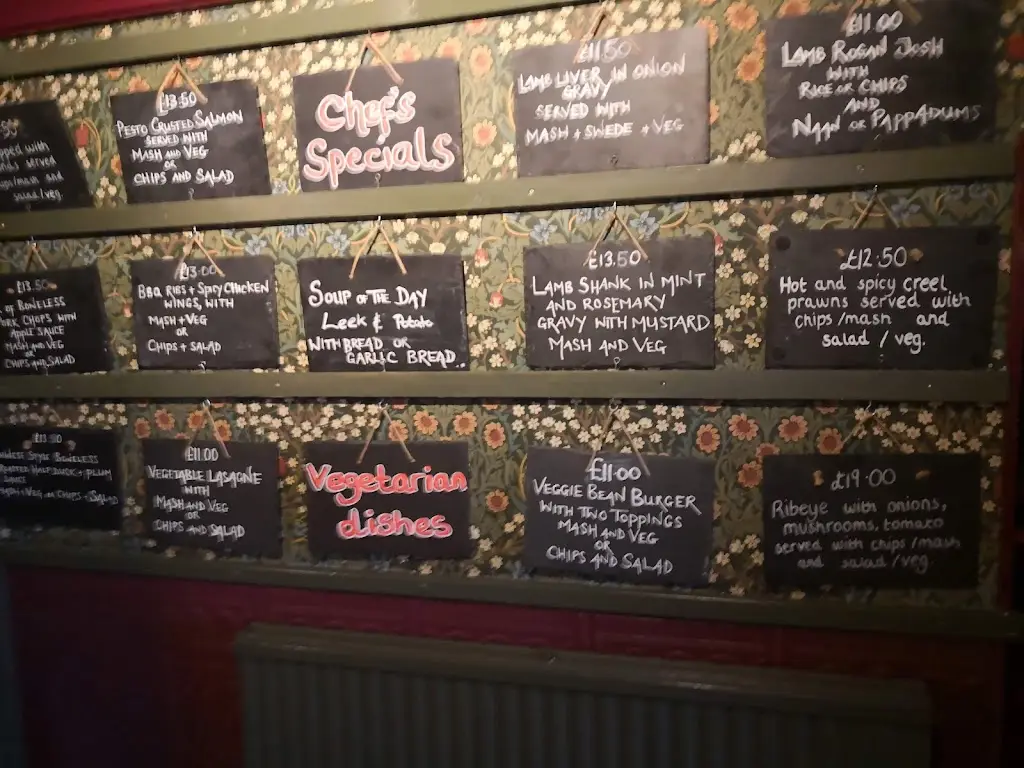 £13.50
PESTO CRUSTED SALMON
SERVED WITH
MASH AND VEG
OR
CHIPS AND SALAD
Chef's
Specials
£11.50
LAMB LIVER IN ONION
GRAVY
SERVED WITH
MASH + SWEDE + VEG
£11.00
LAMB ROGAN JOSH
WITH
RICE OR CHIPS
AND
NAAN OR PAPPADUMS
with
served
mash and
salad/veg.
£13.50
OF BONELESS
CHOPS WITH
APPLE SAUCE
MASH AND VEG
OR
CHIPS AND SALAD
£13.00
BBQ RIBS + SPICY CHICKEN
WINGS, WITH
MASH + VEG
OR
CHIPS + SALAD
SOUP OF THE DAY
Leek & Potato
WITH BREAD OR
GARLIC BREAD..
£13.50
LAMB SHANK IN MINT
AND ROSEMARY
GRAVY WITH MUSTARD
MASH AND VEG
£12.50
Hot and spicy creel
prawns served with
chips/mash and
salad / veg.
£13.50
STYLE BONELESS
HALF DUCK + PLUM
SAUCE
+ VEG OR CHIPS + SALAD
£11.00
VEGETABLE LASAGNE
WITH
MASH AND VEG
OR
CHIPS AND SALAD
Vegetarian
dishes
£11.00
VEGGIE BEAN BURGER
WITH TWO TOPPINGS
MASH AND VEG
OR
CHIPS AND SALAD
£19.00
Ribeye with onions,
mushrooms, tomato
served with chips/mash
and salad/veg.